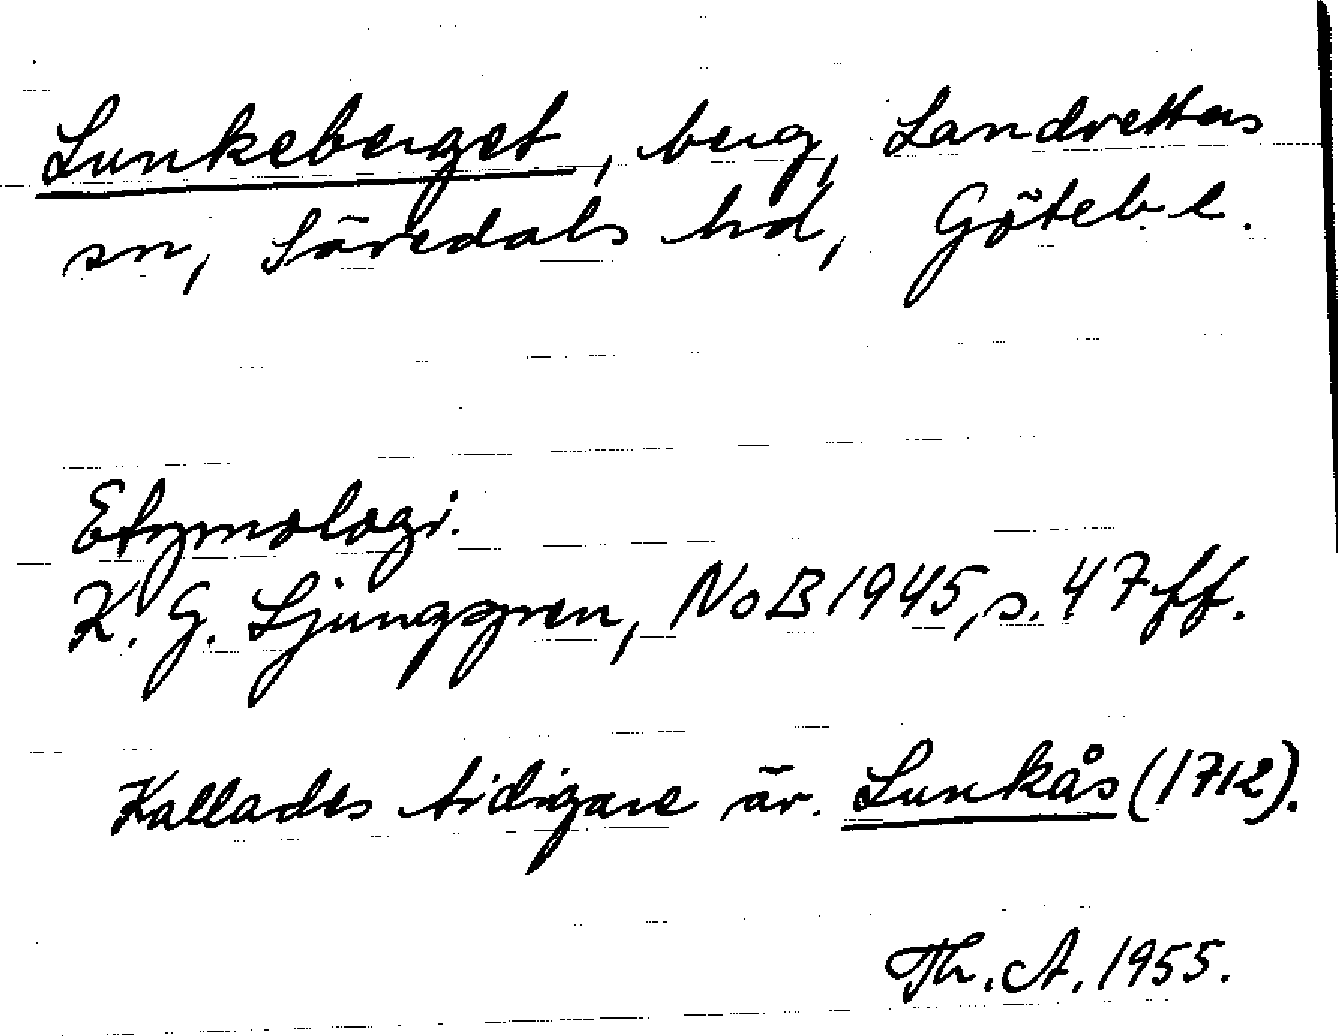 Lunkeberget, berg, Landvetters
sn, Sävedals hd, Göteb. l.
Etymologi.
K. G. Ljunggren, NoB 1945, s. 47 ff.
Kallades tidigare äv. Lunkås (1712).
Th. A. 1955.